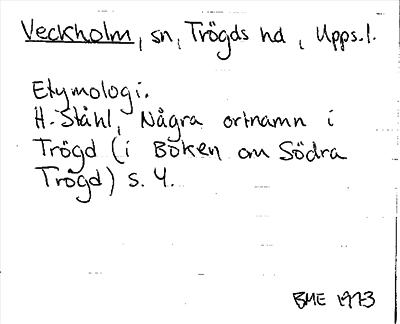 Veckholm, sn, Trögds hd, Upps.l.
Etymologi.
H. Ståhl, Några ortnamn i
Trögd (i Boken om Södra
Trögd) s. 4.
BME 1973